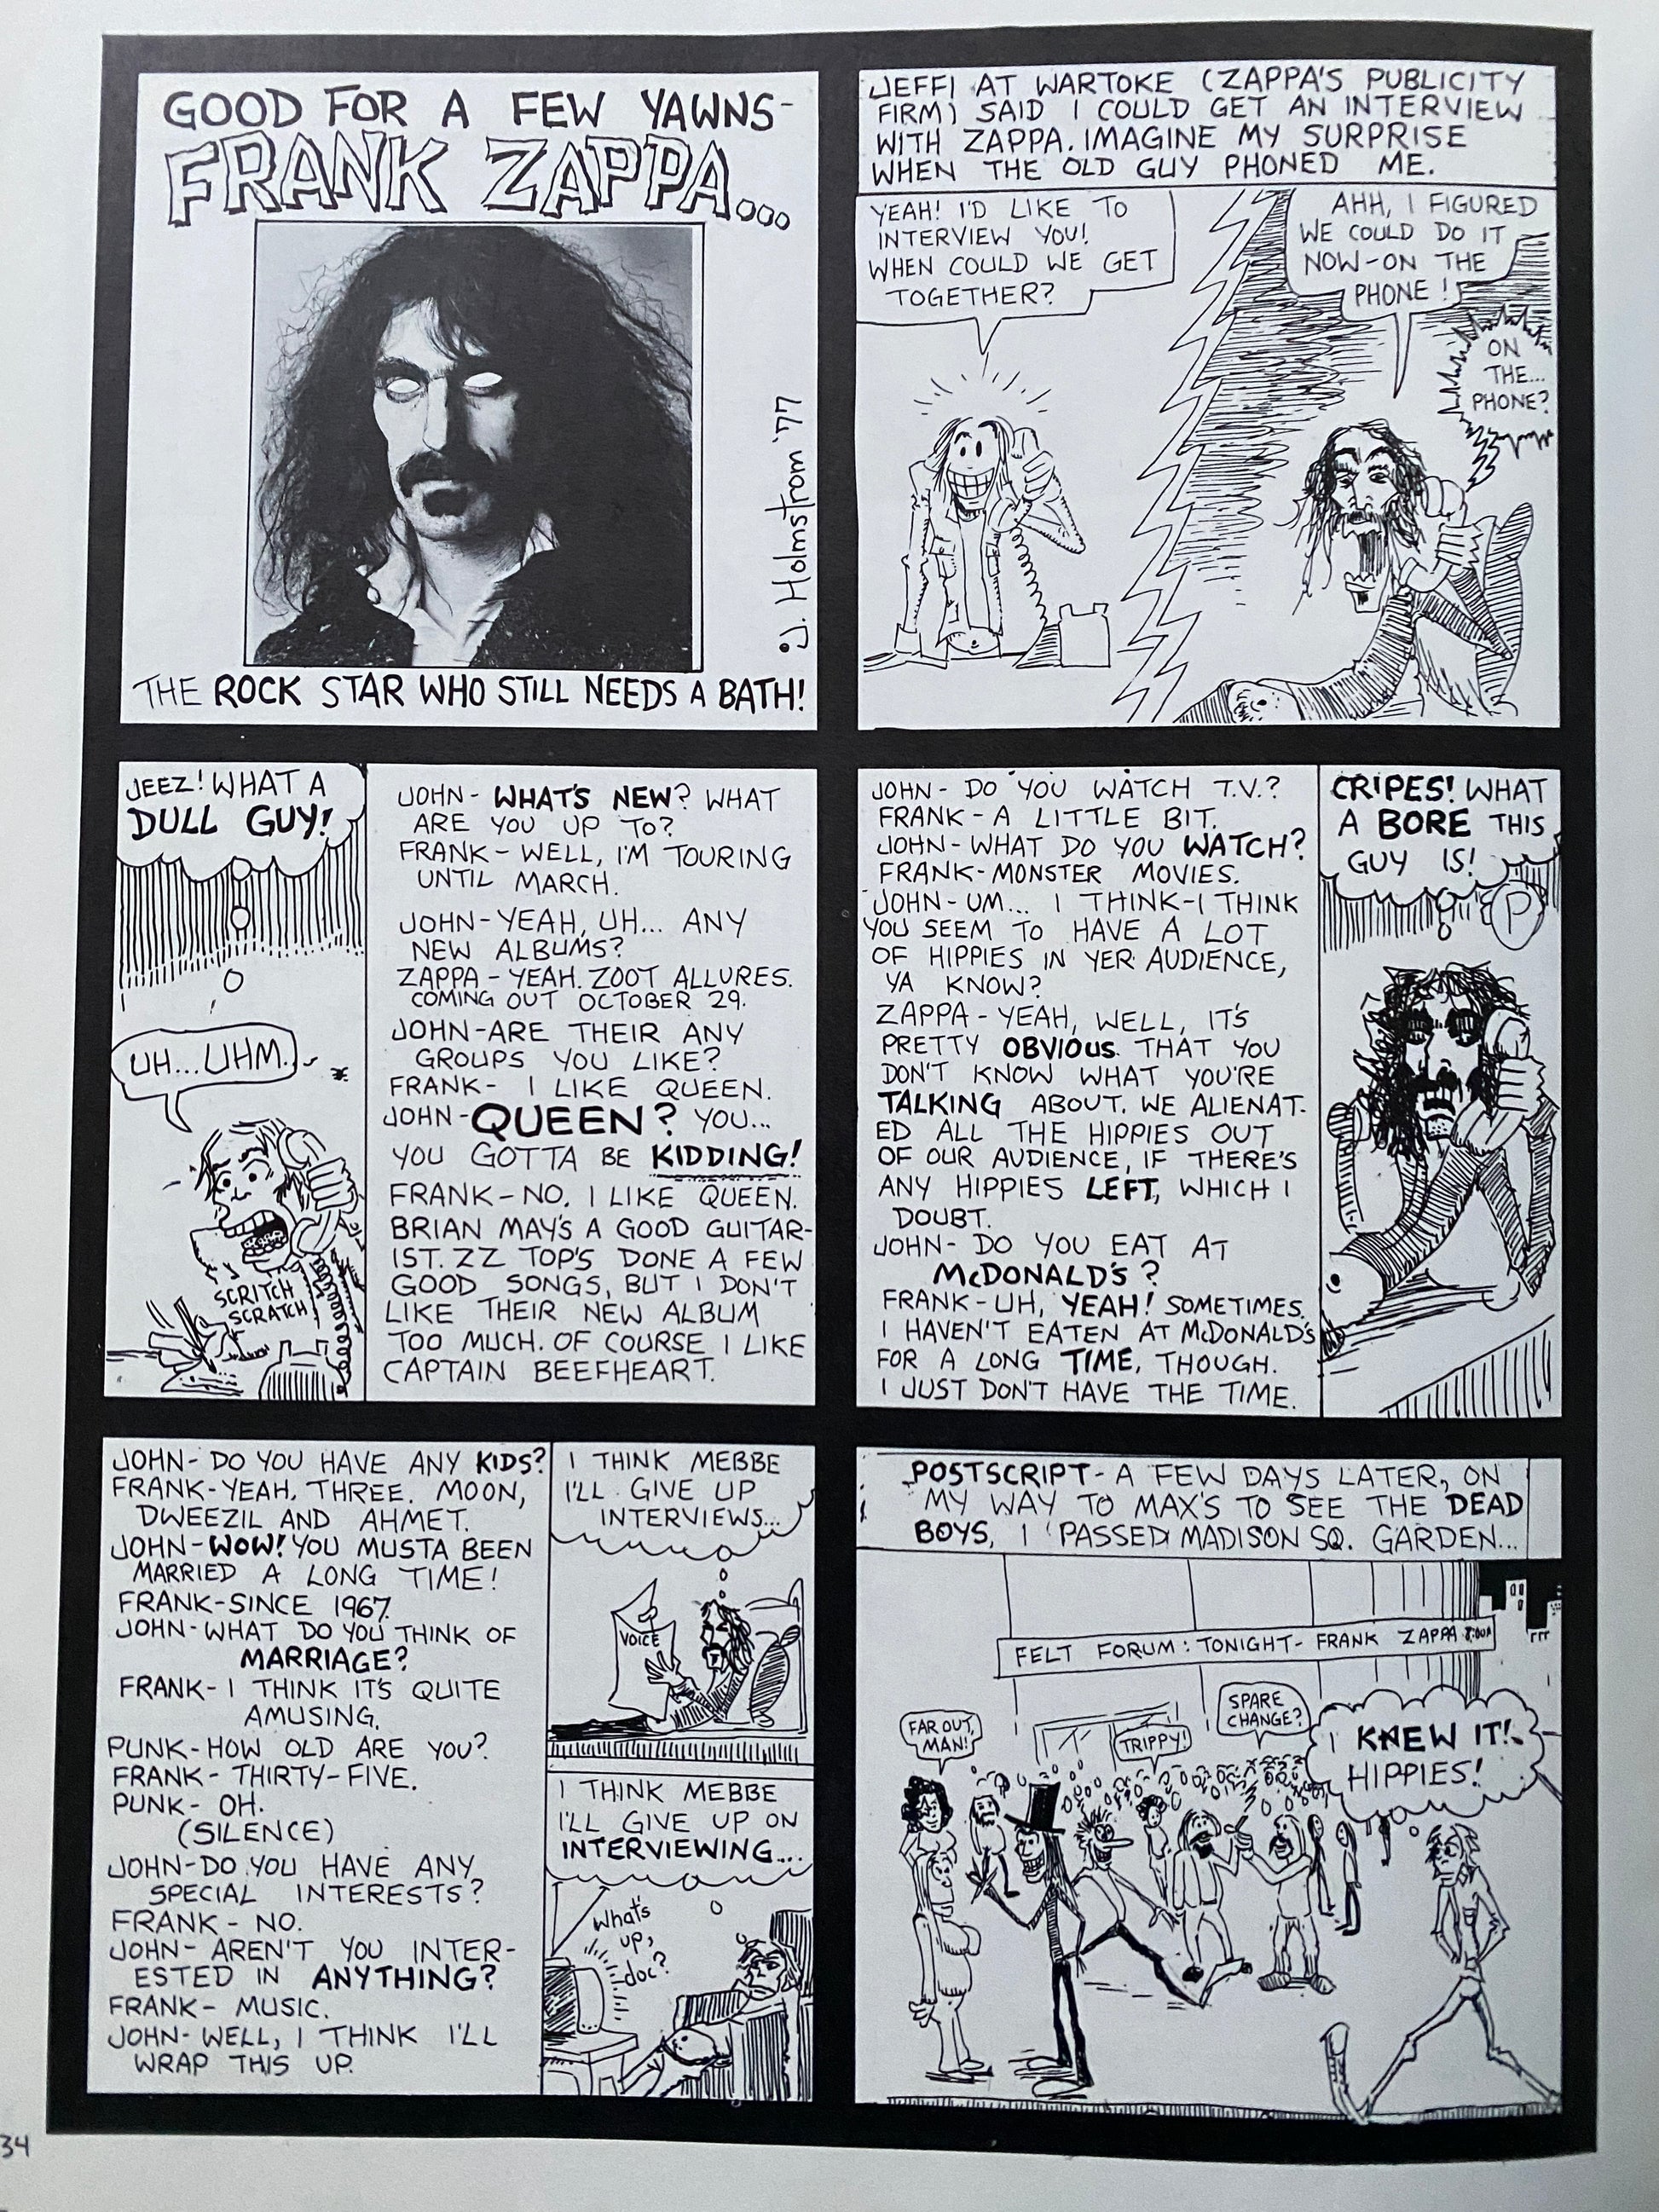 GOOD FOR A FEW YAWNS-
FRANK ZAPPA...
J. Holmstrom '77
THE ROCK STAR WHO STILL NEEDS A BATH!
JEFFI AT WARTOKE (ZAPPA'S PUBLICITY
FIRM) SAID I COULD GET AN INTERVIEW
WITH ZAPPA. IMAGINE MY SURPRISE
WHEN THE OLD GUY PHONED ME.
YEAH! I'D LIKE TO
INTERVIEW YOU!
WHEN COULD WE GET
TOGETHER?
AHH, I FIGURED
WE COULD DO IT
NOW-ON THE
PHONE!
ON
THE...
PHONE?
JEEZ! WHAT A
DULL GUY!
UH...UHM.
SCRITCH
SCRATCH
JOHN- WHAT'S NEW? WHAT
ARE YOU UP TO?
FRANK- WELL, I'M TOURING
UNTIL MARCH.
JOHN-YEAH, UH... ANY
NEW ALBUMS?
ZAPPA-YEAH. ZOOT ALLURES.
COMING OUT OCTOBER 29.
JOHN-ARE THEIR ANY
GROUPS YOU LIKE?
FRANK- I LIKE QUEEN.
JOHN-QUEEN? YOU...
YOU GOTTA BE KIDDING!
FRANK-NO. I LIKE QUEEN.
BRIAN MAY'S A GOOD GUITAR-
IST. ZZ TOP'S DONE A FEW
GOOD SONGS, BUT I DON'T
LIKE THEIR NEW ALBUM
TOO MUCH. OF COURSE I LIKE
CAPTAIN BEEFHEART.
JOHN- DO YOU WATCH T.V.?
FRANK-A LITTLE BIT.
JOHN-WHAT DO YOU WATCH?
FRANK-MONSTER MOVIES.
JOHN-UM... I THINK-I THINK
YOU SEEM TO HAVE A LOT
OF HIPPIES IN YER AUDIENCE,
YA KNOW?
ZAPPA-YEAH, WELL, IT'S
PRETTY OBVIOUS THAT YOU
DON'T KNOW WHAT YOU'RE
TALKING ABOUT. WE ALIENAT-
ED ALL THE HIPPIES OUT
OF OUR AUDIENCE, IF THERE'S
ANY HIPPIES LEFT, WHICH I
DOUBT.
JOHN- DO YOU EAT AT
McDONALD'S?
FRANK-UH, YEAH! SOMETIMES.
I HAVEN'T EATEN AT McDONALD'S
FOR A LONG TIME, THOUGH.
I JUST DON'T HAVE THE TIME.
CRIPES! WHAT
A BORE THIS
GUY IS!
P
JOHN-DO YOU HAVE ANY KIDS?
FRANK-YEAH. THREE. MOON,
DWEEZIL AND AHMET.
JOHN-WOW! YOU MUSTA BEEN
MARRIED A LONG TIME!
FRANK-SINCE 1967.
JOHN-WHAT DO YOU THINK OF
MARRIAGE?
FRANK-I THINK IT'S QUITE
AMUSING.
PUNK-HOW OLD ARE YOU?
FRANK-THIRTY-FIVE.
PUNK- OH.
(SILENCE)
JOHN-DO YOU HAVE ANY
SPECIAL INTERESTS?
FRANK- NO.
JOHN- AREN'T YOU INTER-
ESTED IN ANYTHING?
FRANK- MUSIC.
JOHN-WELL, I THINK I'LL
WRAP THIS UP.
I THINK MEBBE
I'LL GIVE UP
INTERVIEWS...
VOICE
I THINK MEBBE
I'LL GIVE UP ON
INTERVIEWING...
What's
up,
doc?
POSTSCRIPT-A FEW DAYS LATER, ON
MY WAY TO MAX'S TO SEE THE DEAD
BOYS, I PASSED MADISON SQ. GARDEN...
FELT FORUM: TONIGHT- FRANK ZAPPA
FAR OUT,
MAN!
TRIPPY!
SPARE
CHANGE?
I KNEW IT!
HIPPIES!
34